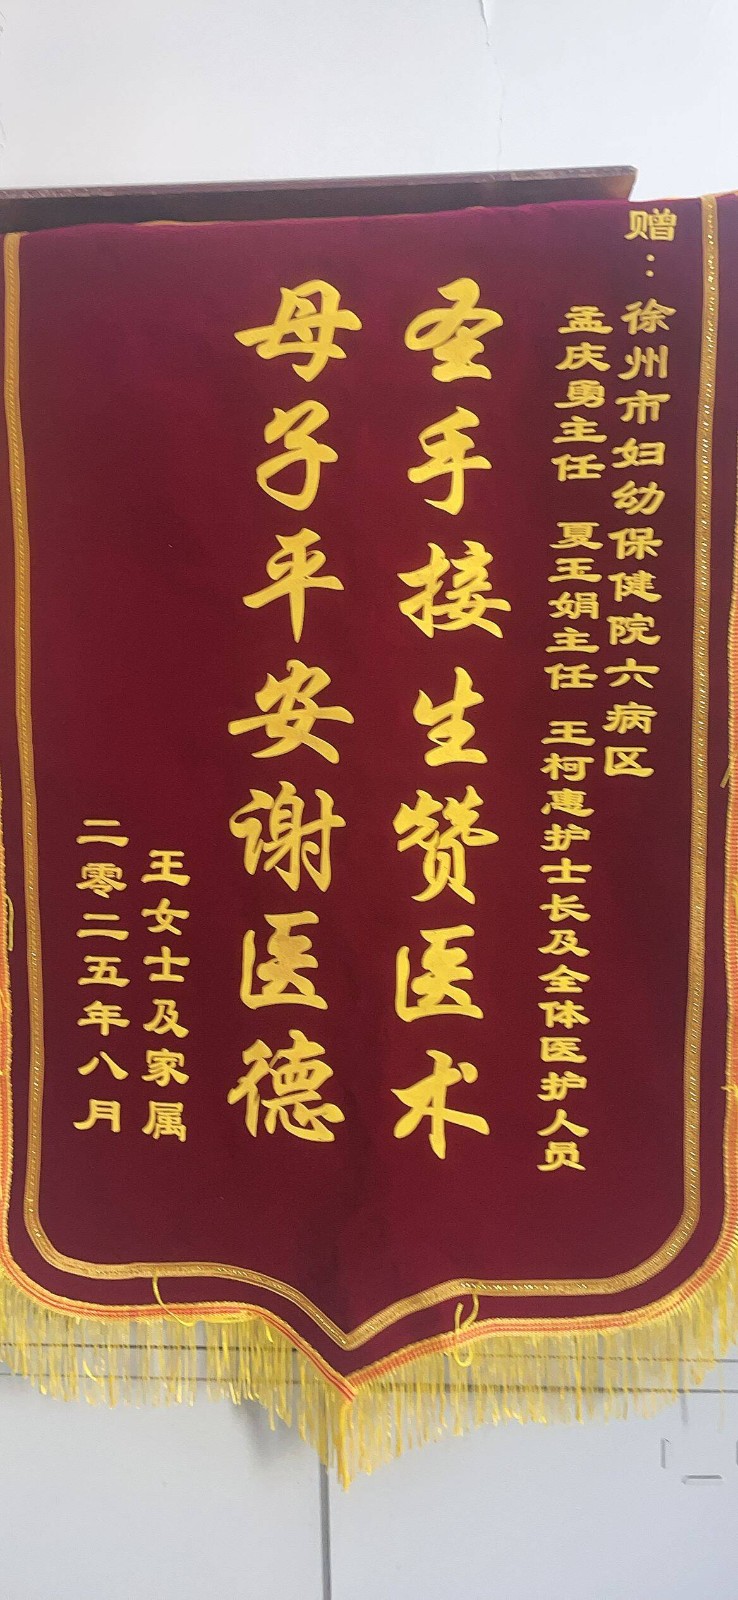 赠：徐州市妇幼保健院六病区
孟庆勇主任 夏玉娟主任 王柯惠护士长及全体医护人员
圣手接生赞医术
母子平安谢医德
王女士及家属
二零二五年八月